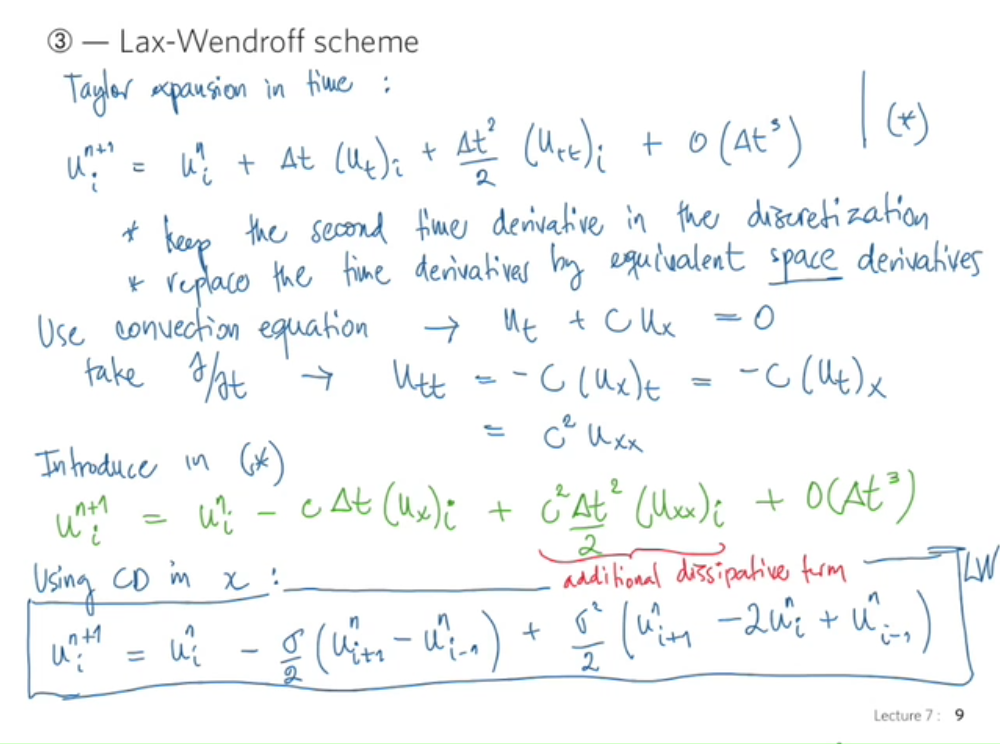 ③ — Lax-Wendroff scheme
Taylor expansion in time :
uᵢⁿ⁺¹ = uᵢⁿ + Δt (uₜ)ᵢ + Δt²/2 (uₜₜ)ᵢ + O(Δt³) | (*)
* keep the second time derivative in the discretization
* replace the time derivatives by equivalent space derivatives
Use convection equation → uₜ + c uₓ = 0
take ∂/∂t → uₜₜ = -c (uₓ)ₜ = -c (uₜ)ₓ
= c² uₓₓ
Introduce in (*)
uᵢⁿ⁺¹ = uᵢⁿ - c Δt (uₓ)ᵢ + c² Δt²/2 (uₓₓ)ᵢ + O(Δt³)
Using CD in x : additional dissipative term LW
uᵢⁿ⁺¹ = uᵢⁿ - σ/2 (uᵢ₊₁ⁿ - uᵢ₋₁ⁿ) + σ²/2 (uᵢ₊₁ⁿ - 2uᵢⁿ + uᵢ₋₁ⁿ)
Lecture 7 : 9